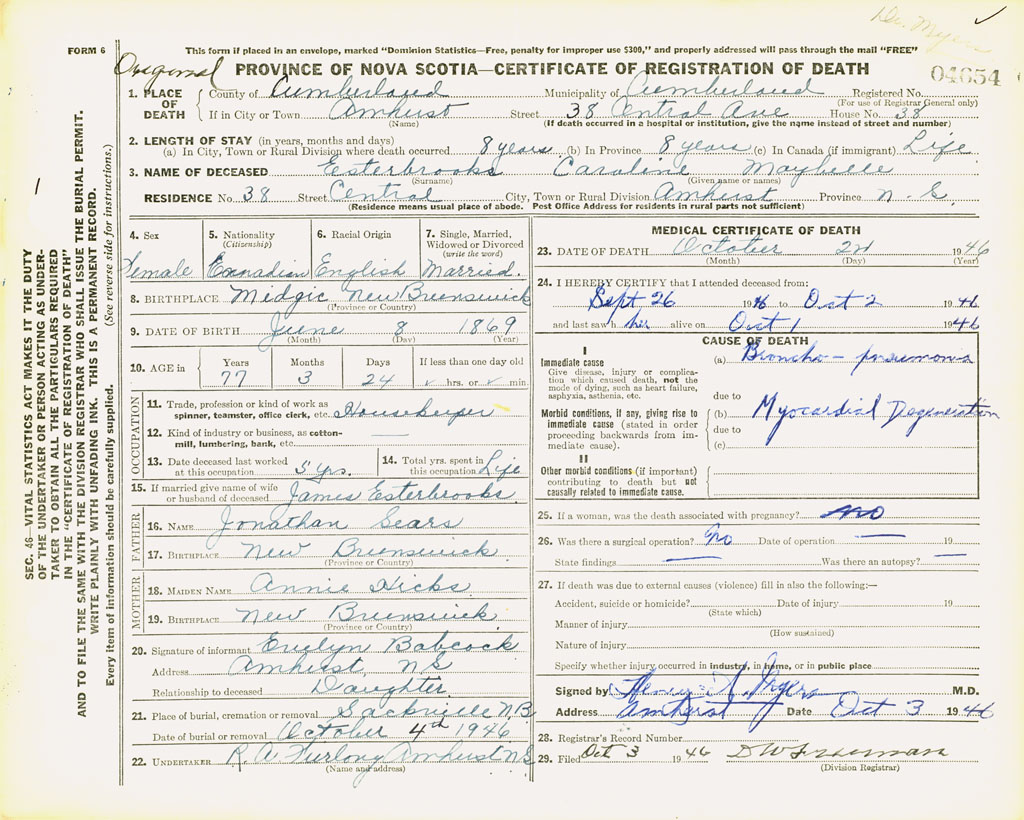 Dr. Myers
FORM 6
This form if placed in an envelope, marked "Dominion Statistics—Free, penalty for improper use $300," and properly addressed will pass through the mail "FREE"
Original PROVINCE OF NOVA SCOTIA—CERTIFICATE OF REGISTRATION OF DEATH
04654
1. PLACE OF DEATH { County of Cumberland Municipality of Cumberland Registered No.
(For use of Registrar General only)
If in City or Town Amherst Street 38 Central Ave House No. 38
(Name) (If death occurred in a hospital or institution, give the name instead of street and number)
2. LENGTH OF STAY (in years, months and days)
(a) In City, Town or Rural Division where death occurred 8 years (b) In Province 8 years (c) In Canada (if immigrant) Life
3. NAME OF DECEASED Esterbrooks Caroline Maybelle
(Surname) (Given name or names)
RESIDENCE No. 38 Street Central City, Town or Rural Division Amherst Province N.S.
(Residence means usual place of abode. Post Office Address for residents in rural parts not sufficient)
4. Sex Female
5. Nationality (Citizenship) Canadian
6. Racial Origin English
7. Single, Married, Widowed or Divorced (write the word) Married.
8. BIRTHPLACE Midgic New Brunswick
(Province or Country)
9. DATE OF BIRTH June 8 1869
(Month) (Day) (Year)
10. AGE in Years 77 Months 3 Days 24 If less than one day old hrs. or min.
OCCUPATION
11. Trade, profession or kind of work as spinner, teamster, office clerk, etc. Housekeeper
12. Kind of industry or business, as cotton-mill, lumbering, bank, etc. —
13. Date deceased last worked at this occupation 5 yrs.
14. Total yrs. spent in this occupation Life
15. If married give name of wife or husband of deceased James Esterbrooks
FATHER
16. NAME Jonathan Sears
17. BIRTHPLACE New Brunswick
(Province or Country)
MOTHER
18. MAIDEN NAME Annie Hicks
19. BIRTHPLACE New Brunswick
(Province or Country)
20. Signature of informant Evelyn Babcock
Address Amherst, N.S
Relationship to deceased Daughter
21. Place of burial, cremation or removal Sackville N.B
Date of burial or removal October 4th 1946
22. UNDERTAKER R. A. Furlong Amherst N.S
(Name and address)
MEDICAL CERTIFICATE OF DEATH
23. DATE OF DEATH October 2nd 1946
(Month) (Day) (Year)
24. I HEREBY CERTIFY that I attended deceased from:
Sept 26 1946 to Oct 2 1946
and last saw her alive on Oct 1 1946
CAUSE OF DEATH
I
Immediate cause
Give disease, injury or complication which caused death, not the mode of dying, such as heart failure, asphyxia, asthenia, etc.
(a) Broncho-pneumonia
due to
Morbid conditions, if any, giving rise to immediate cause (stated in order proceeding backwards from immediate cause).
(b) Myocardial Degeneration
due to
(c)
II
Other morbid conditions (if important) contributing to death but not causally related to immediate cause.
25. If a woman, was the death associated with pregnancy? no
26. Was there a surgical operation? No Date of operation — 19
State findings — Was there an autopsy? —
27. If death was due to external causes (violence) fill in also the following:—
Accident, suicide or homicide? Date of injury 19
(State which)
Manner of injury
(How sustained)
Nature of injury
Specify whether injury occurred in industry, in home, or in public place
Signed by Henry A. Myers M.D.
Address Amherst Date Oct 3 1946
28. Registrar's Record Number
29. Filed Oct 3 1946 D W Freeman
(Division Registrar)
SEC. 46—VITAL STATISTICS ACT MAKES IT THE DUTY
OF THE UNDERTAKER OR PERSON ACTING AS UNDER-
TAKER TO OBTAIN ALL THE PARTICULARS REQUIRED
IN THE "CERTIFICATE OF REGISTRATION OF DEATH"
AND TO FILE THE SAME WITH THE DIVISION REGISTRAR WHO SHALL ISSUE THE BURIAL PERMIT.
WRITE PLAINLY WITH UNFADING INK. THIS IS A PERMANENT RECORD.
Every item of information should be carefully supplied. (See reverse side for instructions.)